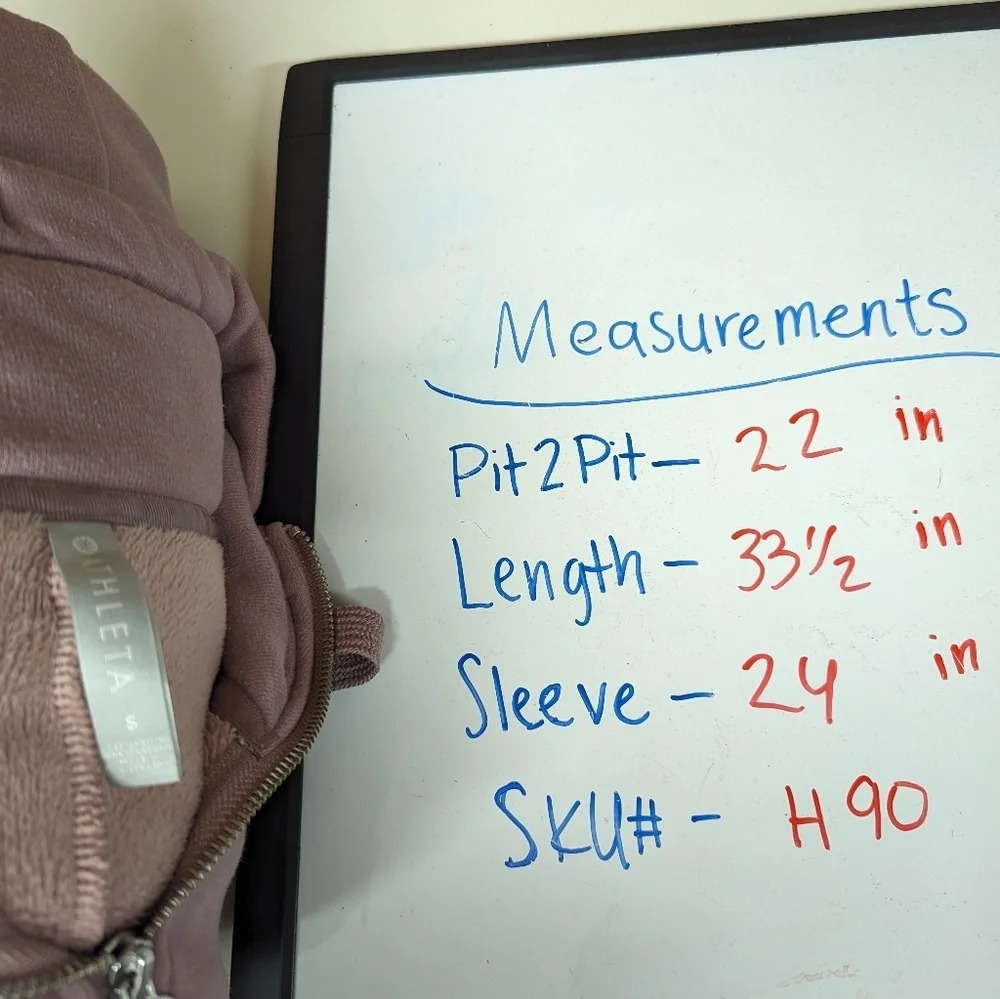 Measurements
Pit2Pit - 22 in
Length - 33 1/2 in
Sleeve - 24 in
SKU# - H90
ATHLETA
S